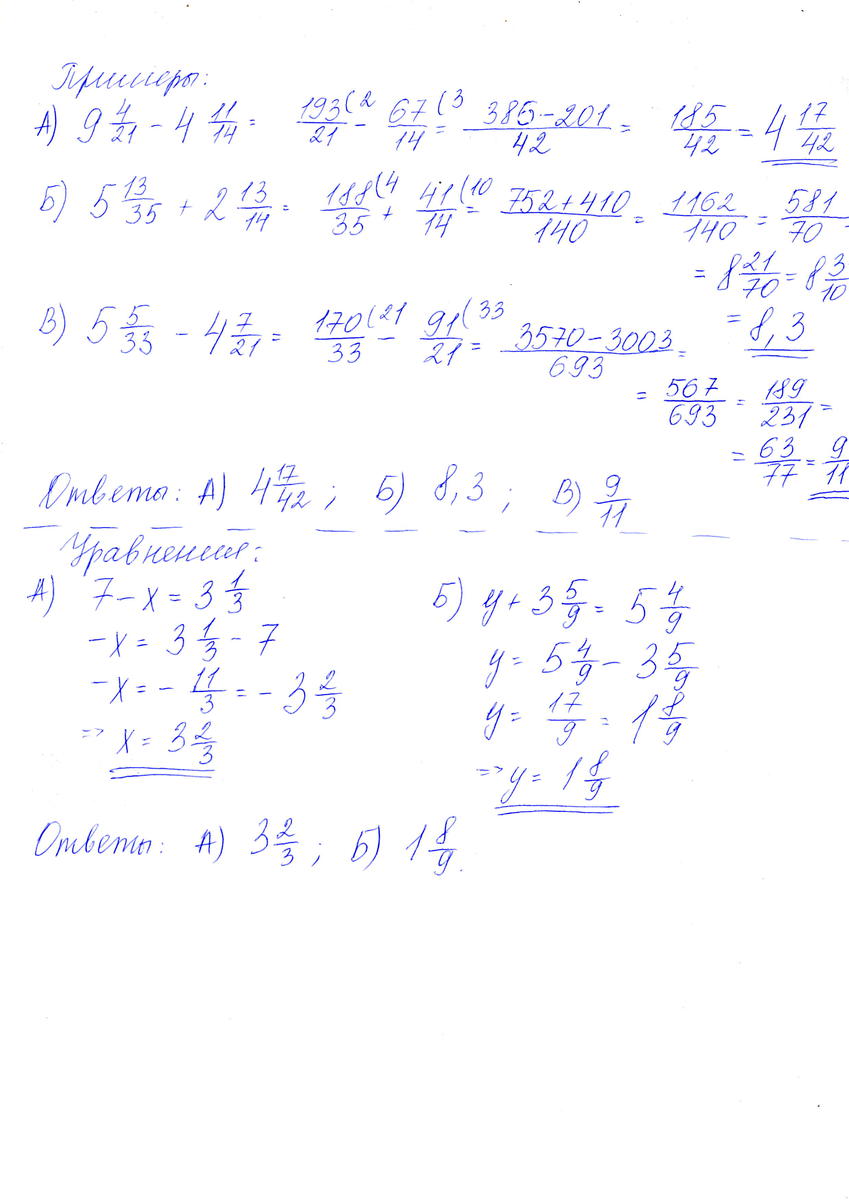 Примеры:
А) 9 4/21 - 4 11/14 = 193(2/21 - 67(3/14 = 386-201/42 = 185/42 = 4 17/42
Б) 5 13/35 + 2 13/14 = 188(4/35 + 41(10/14 = 752+410/140 = 1162/140 = 581/70 =
= 8 21/70 = 8 3/10
= 8,3
В) 5 5/33 - 4 7/21 = 170(21/33 - 91(33/21 = 3570-3003/693 =
= 567/693 = 189/231 =
= 63/77 = 9/11
Ответы: А) 4 17/42 ; Б) 8,3 ; В) 9/11
Уравнения:
А) 7 - x = 3 1/3
-x = 3 1/3 - 7
-x = - 11/3 = - 3 2/3
=> x = 3 2/3
Б) y + 3 5/9 = 5 4/9
y = 5 4/9 - 3 5/9
y = 17/9 = 1 8/9
=> y = 1 8/9
Ответы: А) 3 2/3 ; Б) 1 8/9.